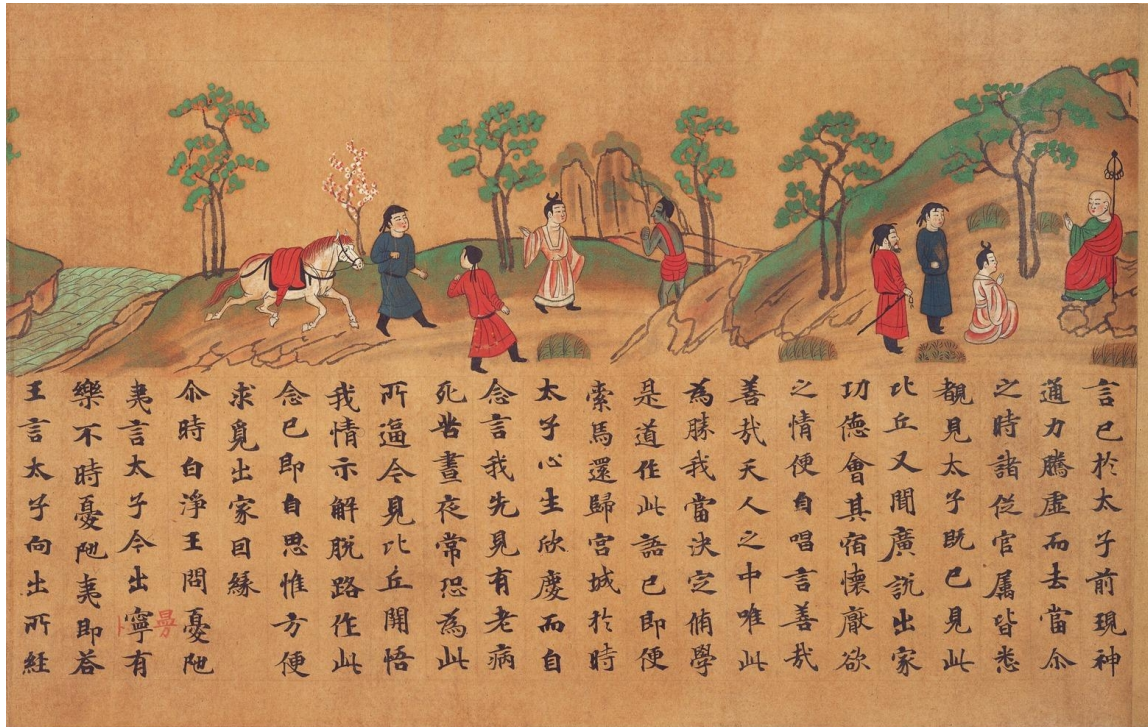 言已於太子前現神
通力騰虛而去當尒
之時諸從官屬皆悉
覩見太子既已見此
比丘又聞廣說出家
功德會其宿懷厭欲
之情便自唱言善哉
善哉天人之中唯此
為勝我當決定脩學
是道作此語已即便
索馬還歸宮城於時
太子心生欣慶而自
念言我先見有老病
死苦晝夜常恐為此
所逼今見比丘開悟
我情示解脫路作此
念已即自思惟方便
求覓出家因緣
尒時白淨王問憂陁
夷言太子今出寧有
樂不時憂陁夷即荅
王言太子向出所経